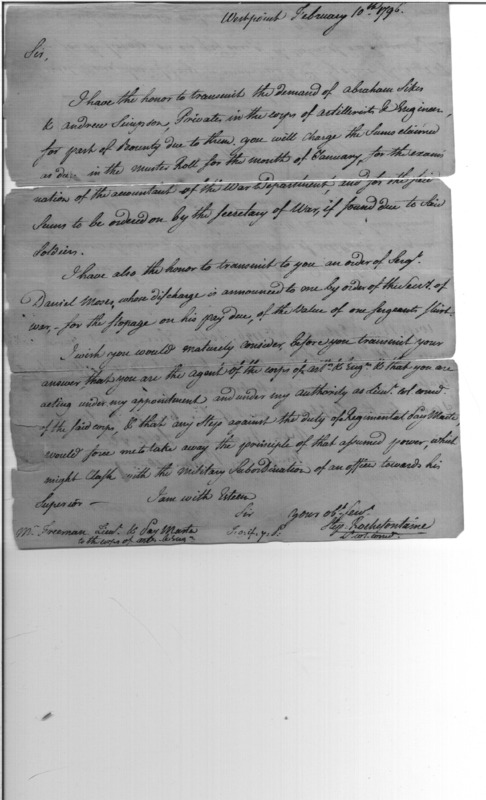 Westpoint February 10th 1796.
Sir,
I have the honor to transmit the demand of abraham Sikes
& andrew Simpson, Privates in the corps of artillerists & Engineers,
for part of Bounty due to them. you will charge the Sums claimed
as due in the muster Roll for the month of January, for the exami
nation of the accountant of the War Department, and for the said
Sums to be ordered on by the Secretary of War, if found due to Said
Soldiers.
I have also the honor to transmit to you an order of Sergt.
Daniel Mose, whose discharge is announced to me by order of the Secry. of
war, - for the stopage on his pay due, of the value of one Sergeants Shirt -
I wish you would maturely consider, before you transmit your
answer that you are the agent of the corps of arts. & Engrs. & that you are
acting under my appointment and under my authority as Lieut. col comd.
of the said corps, & that any Step against the duty of Regimental Pay Master
would force me to take away the principle of that assumed power, which
might Clash with the Military Subordination of an officer towards his
Superior - I am with Esteem
Sir yours obt. Servt.
Mr. Freeman Lieut. & Pay Master Stepn. Rochefontaine
to the corps of arts. & Eng. Lt col comd.